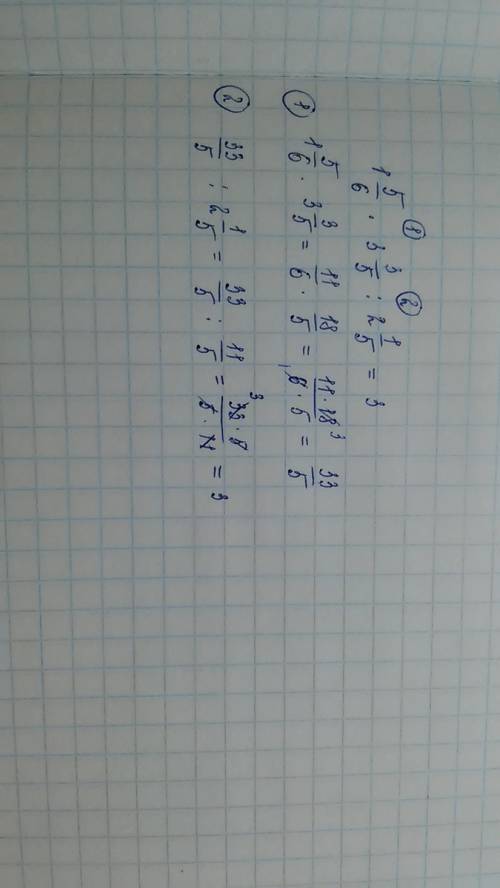 1 5/6 · 3 3/5 : 2 1/5 = 3
① ②
① 1 5/6 · 3 3/5 = 11/6 · 18/5 = 11·18/6·5 = 33/5
1 3
② 33/5 : 2 1/5 = 33/5 : 11/5 = 33·5/5·11 = 3
3